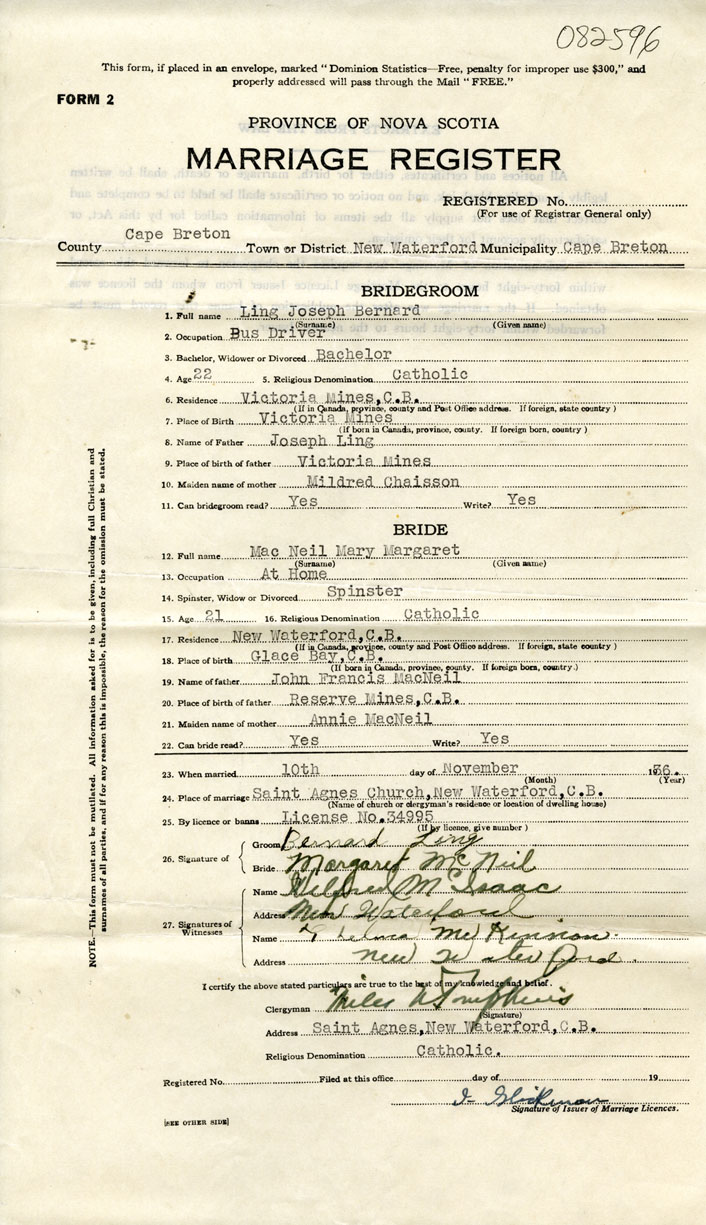 082596
This form, if placed in an envelope, marked "Dominion Statistics—Free, penalty for improper use $300," and
properly addressed will pass through the Mail "FREE."
FORM 2
PROVINCE OF NOVA SCOTIA
MARRIAGE REGISTER
REGISTERED No.
(For use of Registrar General only)
County Cape Breton Town or District New Waterford Municipality Cape Breton
BRIDEGROOM
1. Full name Ling Joseph Bernard
(Surname) (Given name)
2. Occupation Bus Driver
3. Bachelor, Widower or Divorced Bachelor
4. Age 22 5. Religious Denomination Catholic
6. Residence Victoria Mines,C.B.
(If in Canada, province, county and Post Office address. If foreign, state country)
7. Place of Birth Victoria Mines
(If born in Canada, province, county. If foreign born, country)
8. Name of Father Joseph Ling
9. Place of birth of father Victoria Mines
10. Maiden name of mother Mildred Chaisson
11. Can bridegroom read? Yes Write? Yes
BRIDE
12. Full name Mac Neil Mary Margaret
(Surname) (Given name)
13. Occupation At Home
14. Spinster, Widow or Divorced Spinster
15. Age 21 16. Religious Denomination Catholic
17. Residence New Waterford,C.B.
(If in Canada, province, county and Post Office address. If foreign, state country)
18. Place of birth Glace Bay,C.B.
(If born in Canada, province, county. If foreign born, country.)
19. Name of father John Francis MacNeil
20. Place of birth of father Reserve Mines,C.B.
21. Maiden name of mother Annie MacNeil
22. Can bride read? Yes Write? Yes
23. When married 10th day of November 1936.
(Month) (Year)
24. Place of marriage Saint Agnes Church,New Waterford,C.B.
(Name of church or clergyman's residence or location of dwelling house)
25. By licence or banns License No.34995
(If by licence, give number)
26. Signature of
Groom Bernard Ling
Bride Margaret McNeil
27. Signatures of Witnesses
Name Mildred McIsaac
Address New Waterford
Name Thelma McKinnon.
Address New Waterford.
I certify the above stated particulars are true to the best of my knowledge and belief.
Clergyman Miles Tompkins
(Signature)
Address Saint Agnes,New Waterford,C.B.
Religious Denomination Catholic.
Registered No. Filed at this office day of 19
Signature of Issuer of Marriage Licences.
[SEE OTHER SIDE]
NOTE.—This form must not be mutilated. All information asked for is to be given, including full Christian and
surnames of all parties, and if for any reason this is impossible, the reason for the omission must be stated.